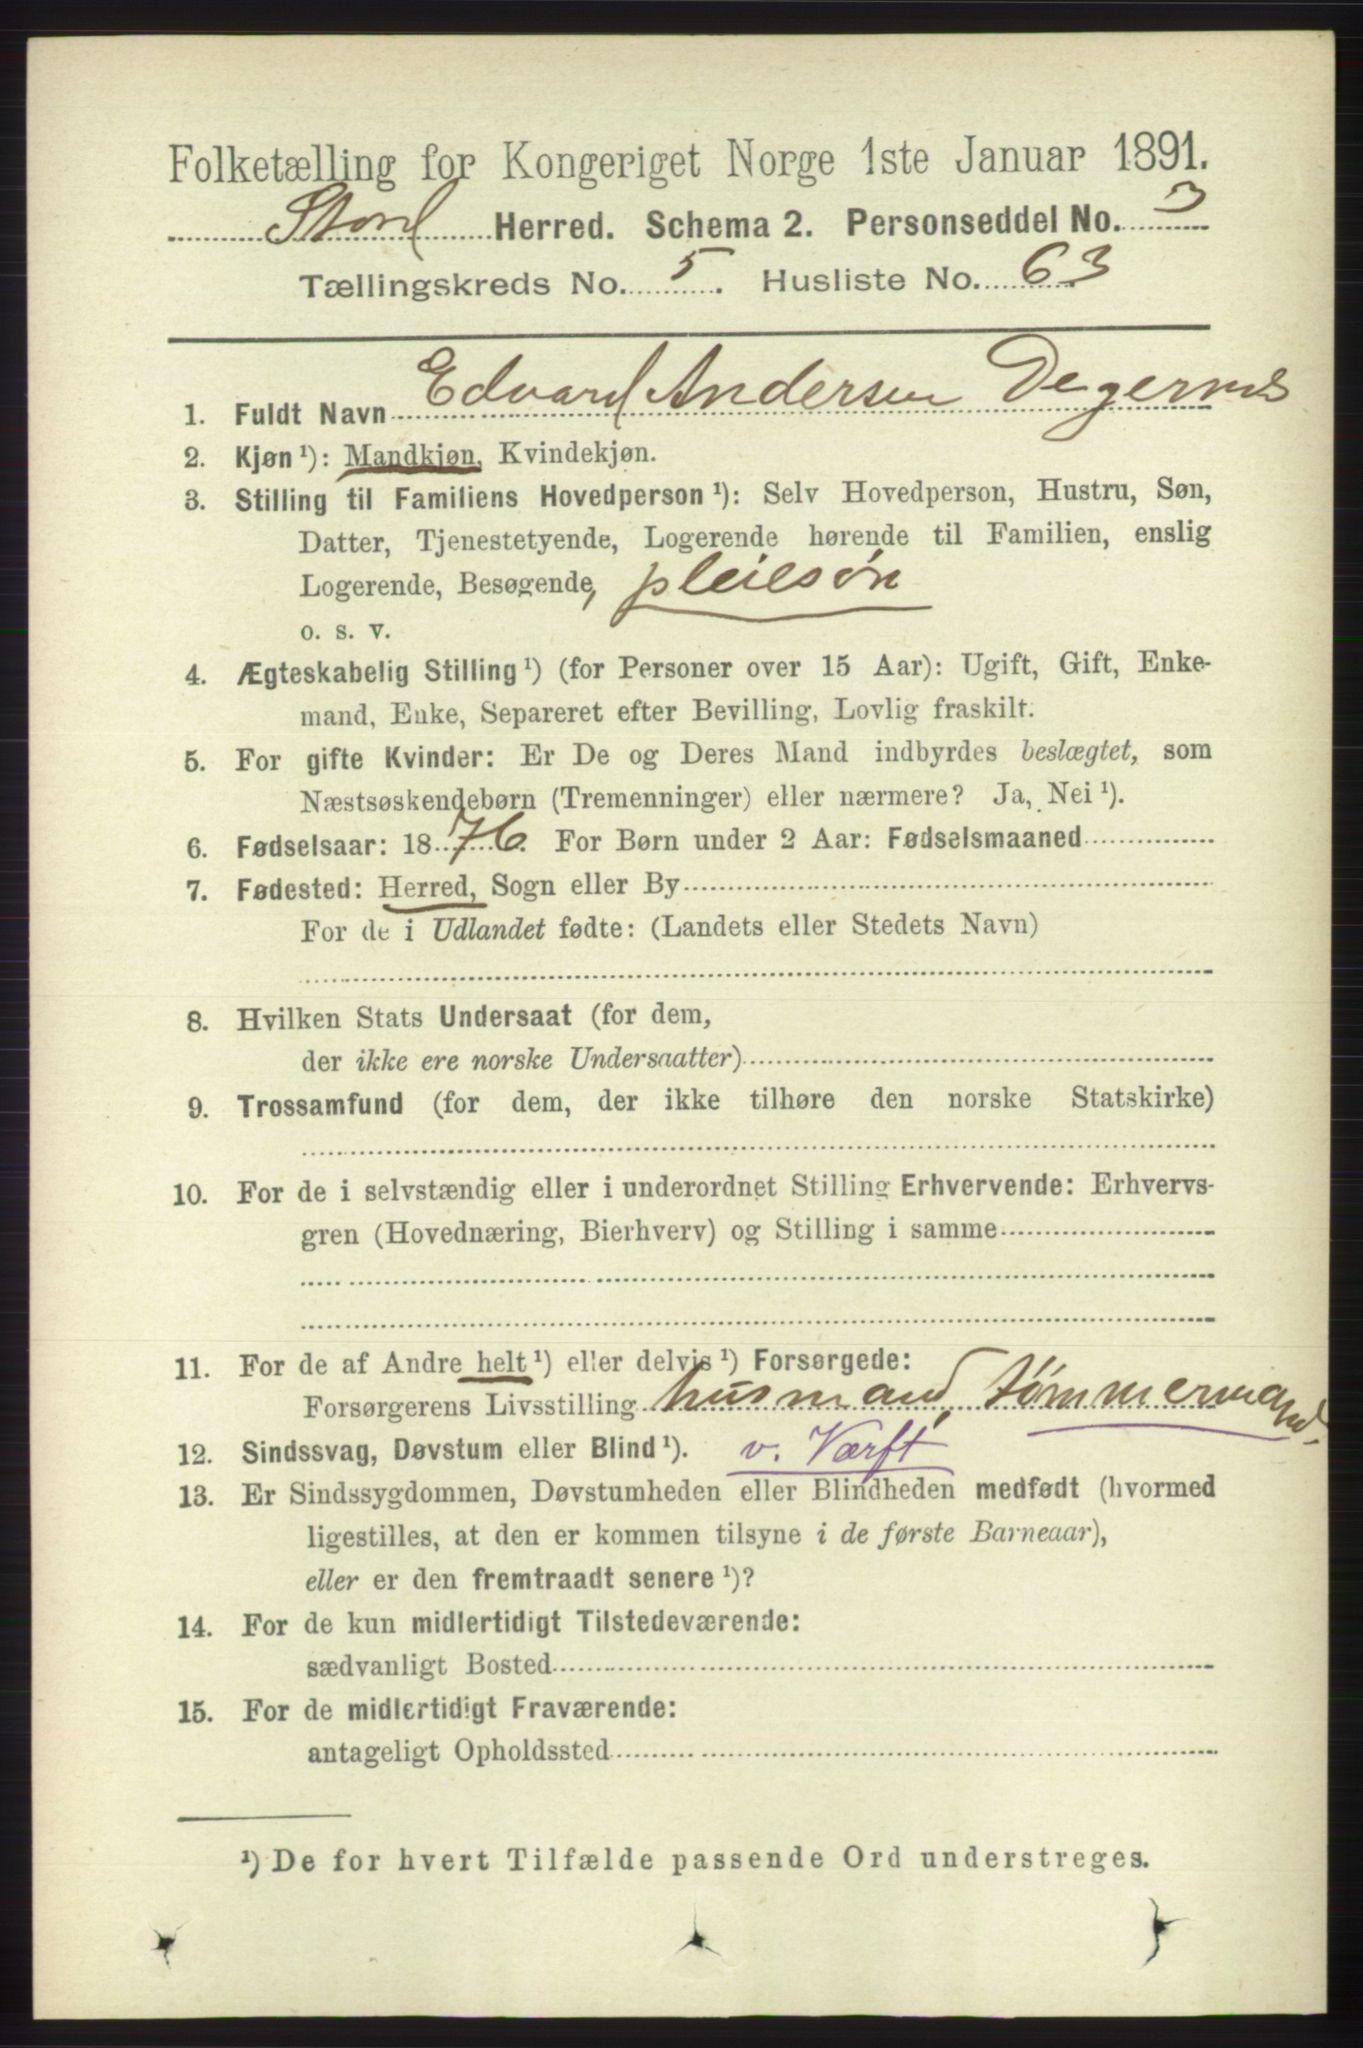 Folketælling for Kongeriget Norge 1ste Januar 1891.
Stord Herred. Schema 2. Personseddel No. 3
Tællingskreds No. 5. Husliste No. 63
1. Fuldt Navn Edvard Andersen Degernes
2. Kjøn ¹): Mandkjøn, Kvindekjøn.
3. Stilling til Familiens Hovedperson ¹): Selv Hovedperson, Hustru, Søn,
Datter, Tjenestetyende, Logerende hørende til Familien, enslig
Logerende, Besøgende, pleiesøn
o. s. v.
4. Ægteskabelig Stilling ¹) (for Personer over 15 Aar): Ugift, Gift, Enke-
mand, Enke, Separeret efter Bevilling, Lovlig fraskilt.
5. For gifte Kvinder: Er De og Deres Mand indbyrdes beslægtet, som
Næstsøskendebørn (Tremenninger) eller nærmere? Ja, Nei ¹).
6. Fødselsaar: 1876. For Børn under 2 Aar: Fødselsmaaned
7. Fødested: Herred, Sogn eller By
For de i Udlandet fødte: (Landets eller Stedets Navn)
8. Hvilken Stats Undersaat (for dem,
der ikke ere norske Undersaatter)
9. Trossamfund (for dem, der ikke tilhøre den norske Statskirke)
10. For de i selvstændig eller i underordnet Stilling Erhvervende: Erhvervs-
gren (Hovednæring, Bierhverv) og Stilling i samme
11. For de af Andre helt ¹) eller delvis ¹) Forsørgede:
Forsørgerens Livsstilling husmand, tømmermand.
12. Sindssvag, Døvstum eller Blind ¹). v. Værft
13. Er Sindssygdommen, Døvstumheden eller Blindheden medfødt (hvormed
ligestilles, at den er kommen tilsyne i de første Barneaar),
eller er den fremtraadt senere ¹)?
14. For de kun midlertidigt Tilstedeværende:
sædvanligt Bosted
15. For de midlertidigt Fraværende:
antageligt Opholdssted
¹) De for hvert Tilfælde passende Ord understreges.